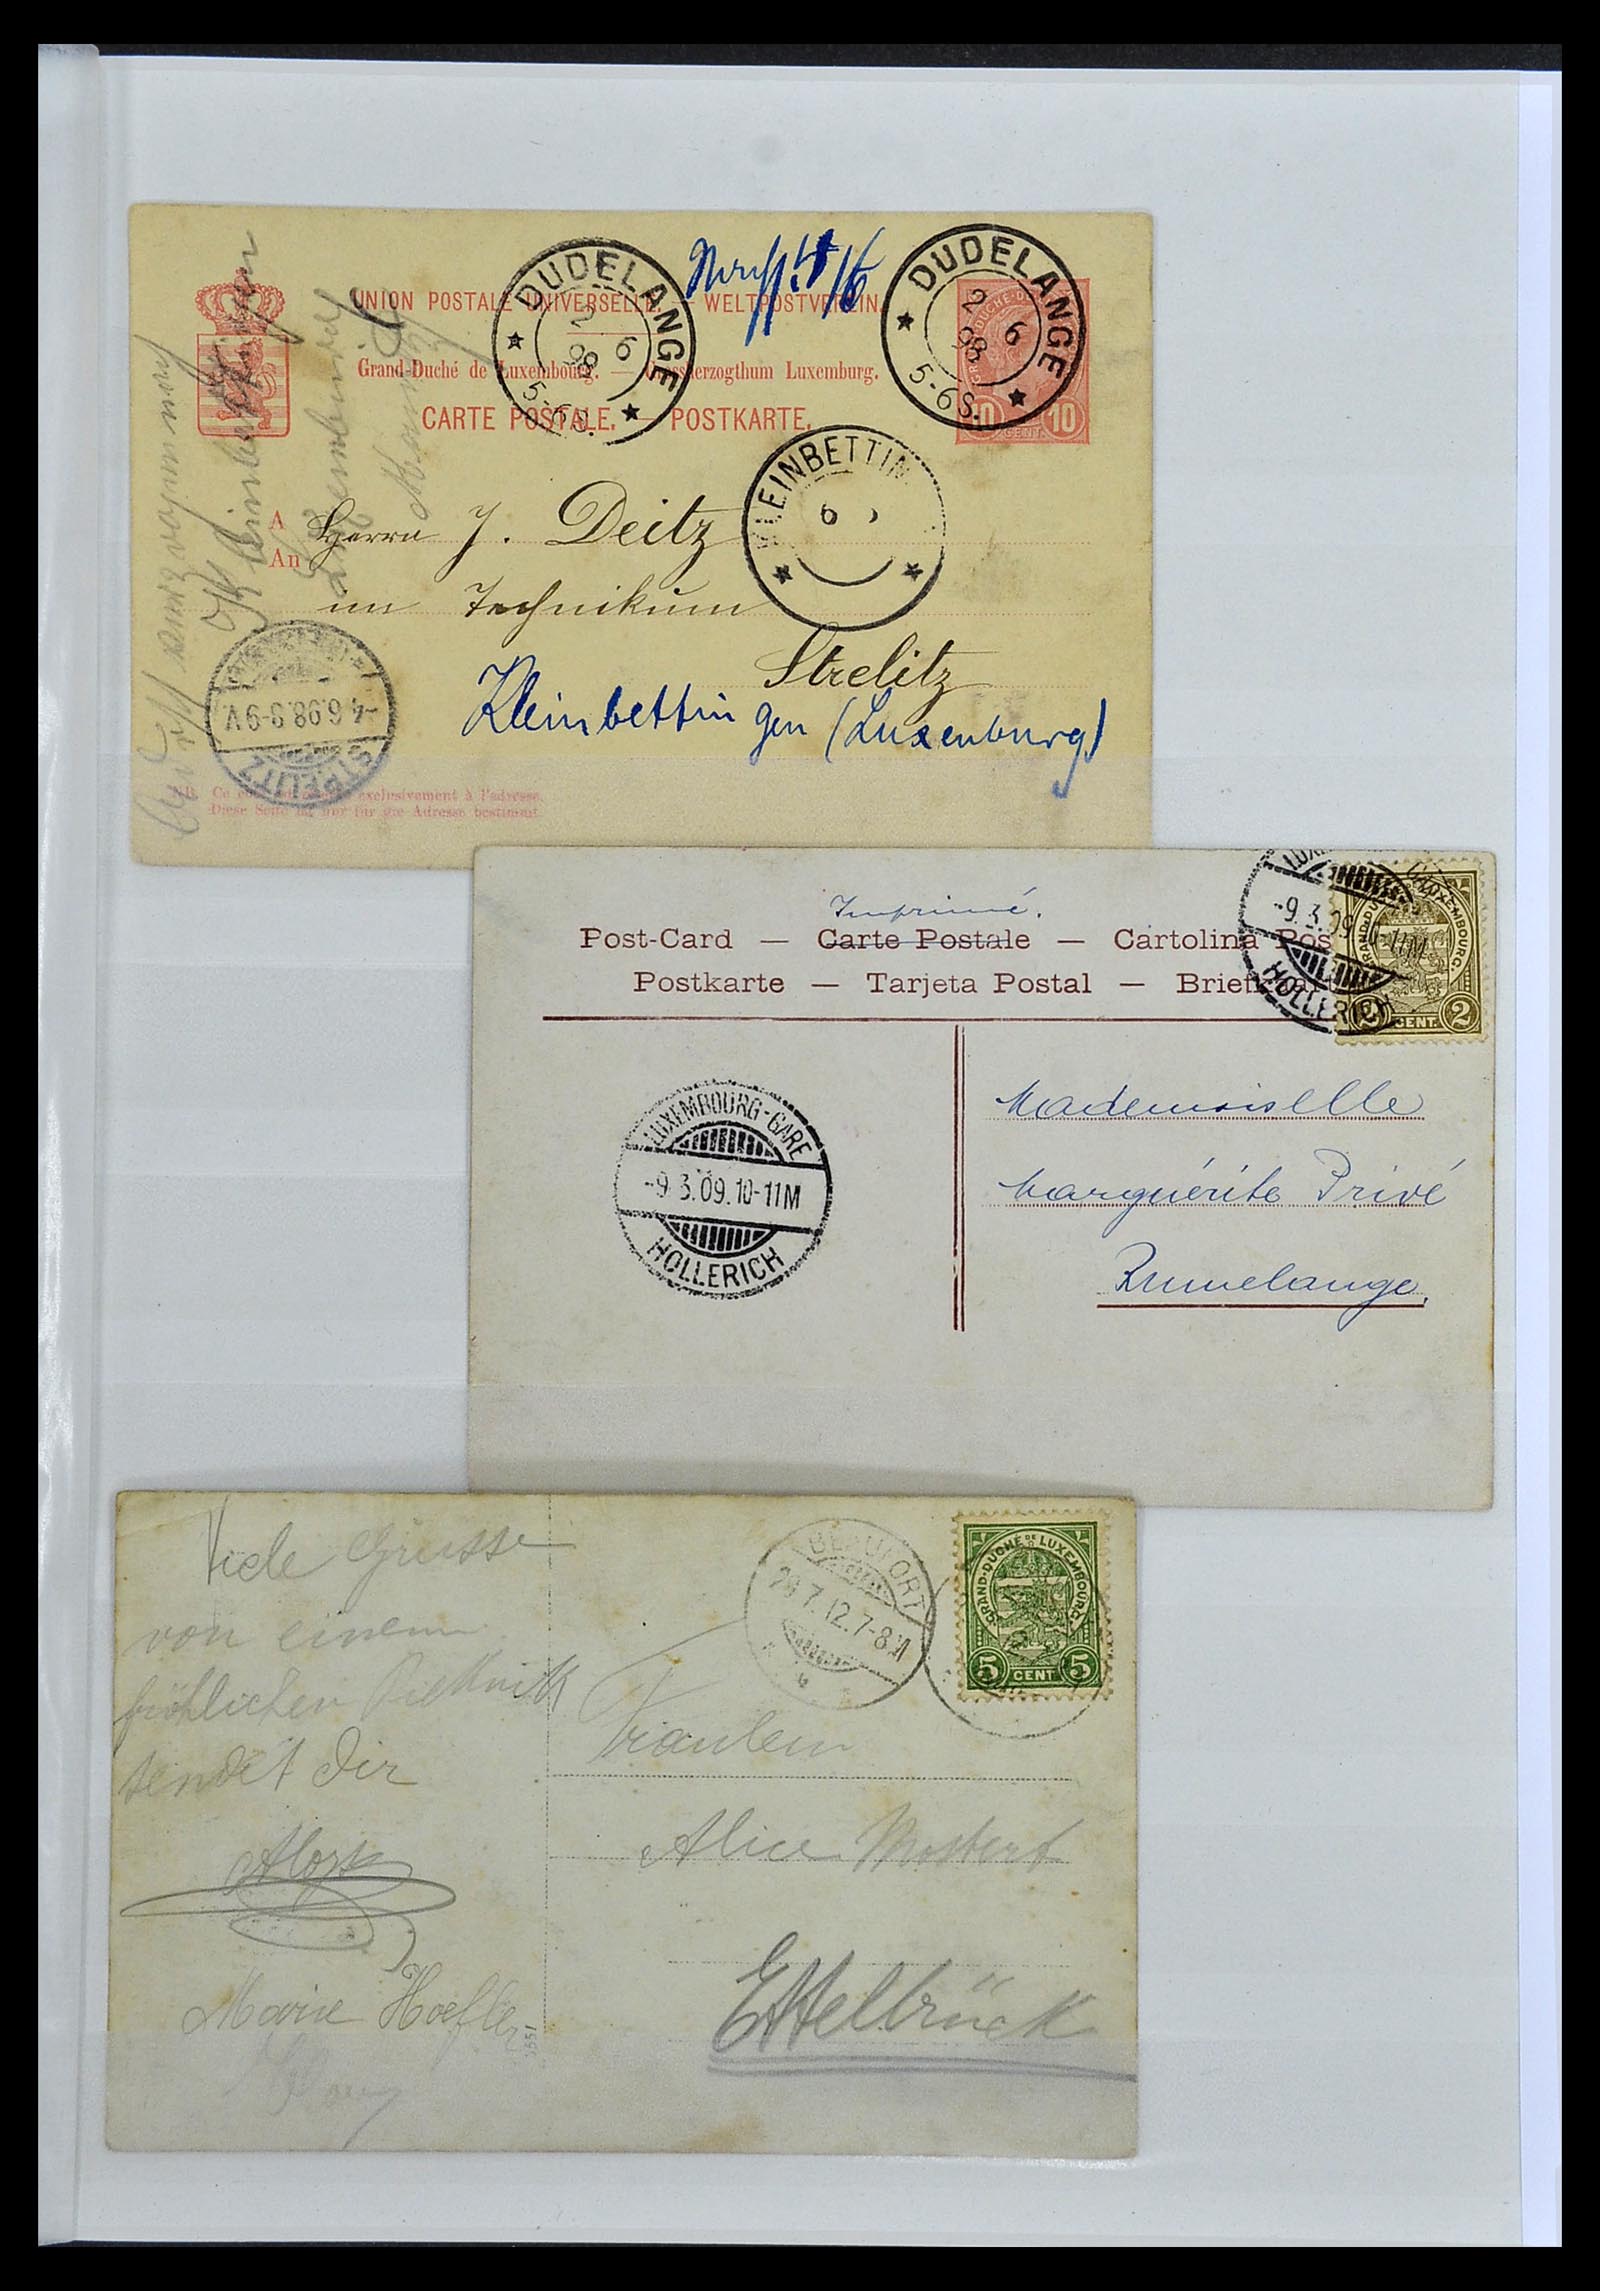 UNION POSTALE UNIVERSELLE. — WELTPOSTVEREIN.
Grand-Duché de Luxembourg. — Grossherzogthum Luxemburg.
CARTE POSTALE. — POSTKARTE.
DUDELANGE
2 6
98
5-6S.
DUDELANGE
2 6
98
5-6S.
10 CENT. 10
KLEINBETTIN
6
A
An
Herrn J. Deitz
im Technikum
Strelitz
Kleinbettingen (Luxenburg)
Kleinbettingen
Luxemburg
STRELITZ
-4.6.98.8-9V
Ce côté est réservé exclusivement à l'adresse.
Diese Seite ist nur für die Adresse bestimmt.
Imprimé.
Post-Card — Carte Postale — Cartolina Pos
Postkarte — Tarjeta Postal — Briefkaart
-9.3.09. 11M
HOLLERICH
GRAND-DUCHÉ DE LUXEMBOURG.
2 CENT. 2
LUXEMBOURG-GARE
-9.3.09.10-11M
HOLLERICH
Mademoiselle
Marguérite Privé
Rumelange.
Viele Grüsse
von einem
fröhlichen Picknick
sendet dir
Aloyse
Marie Hoefler
BEAUFORT
29.7.12.7-8M
GRAND-DUCHÉ DE LUXEMBOURG.
5 CENT 5
Fräulein
Alice Mostert
Ettelbrück